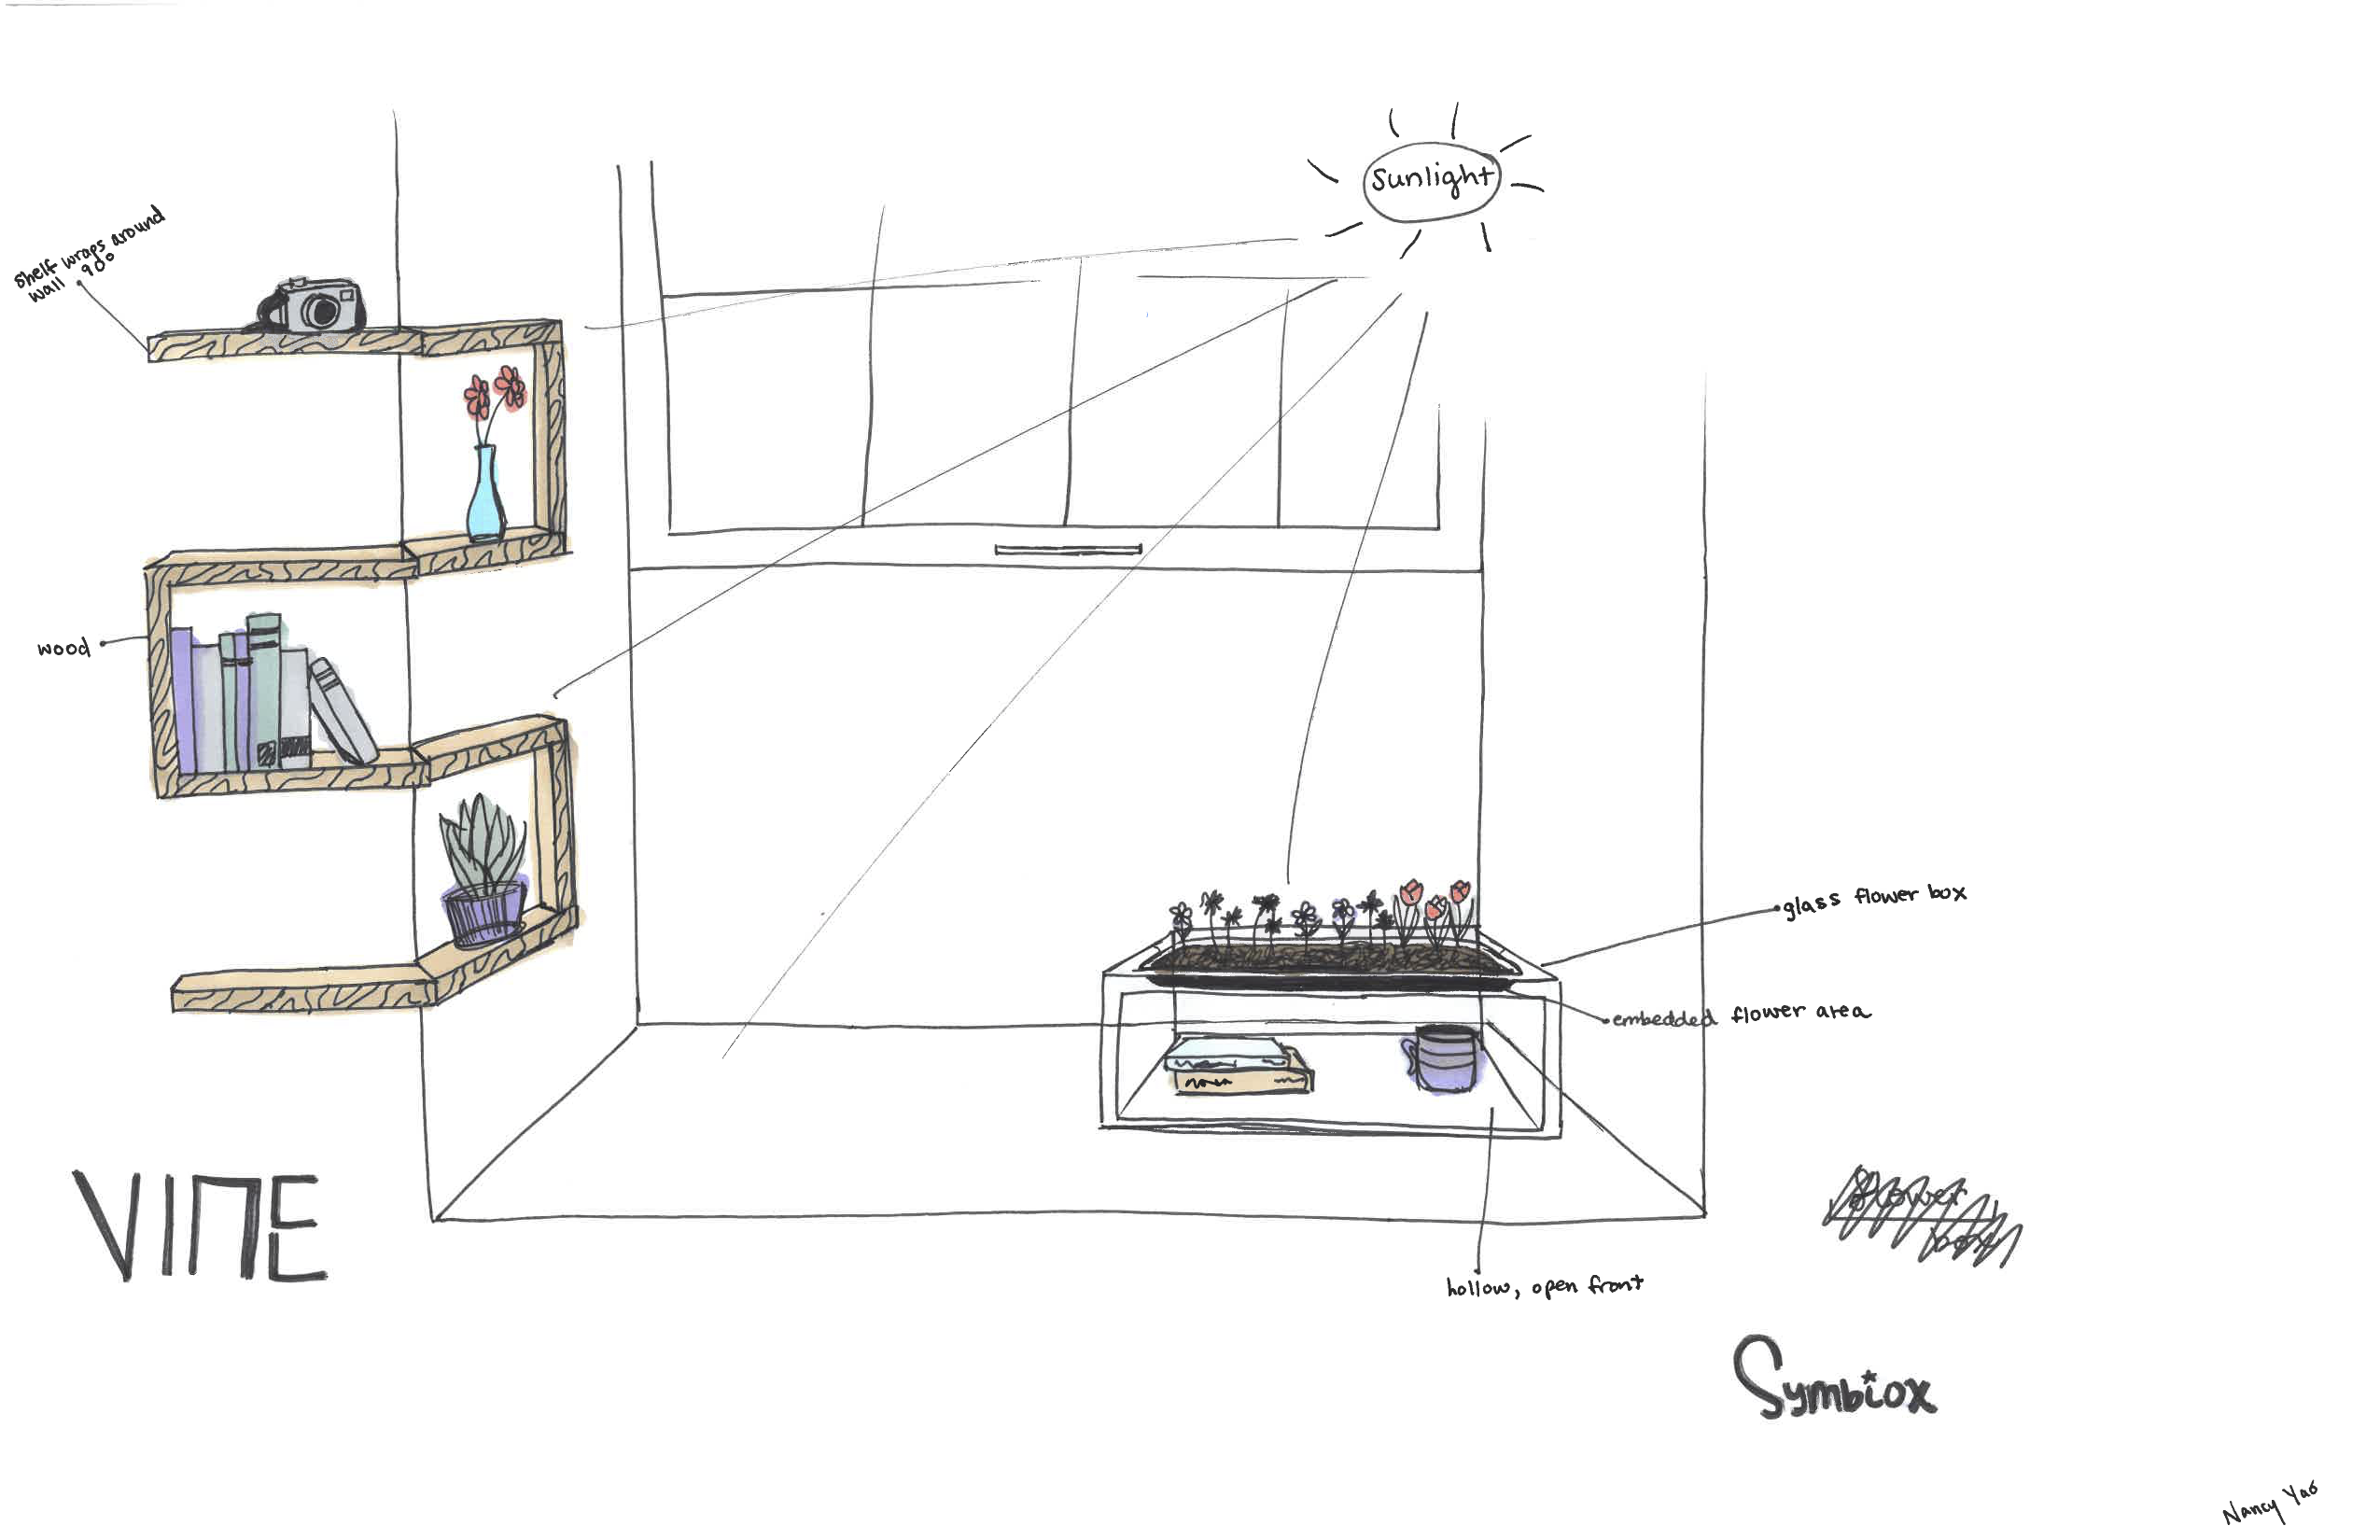 Sunlight
shelf wraps around
wall 90°
wood
glass flower box
embedded flower area
hollow, open front
VINE
flower
box
Symbiox
Nancy Yao